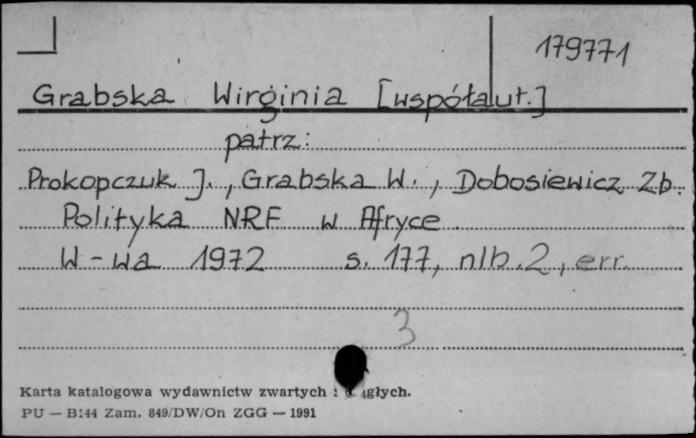 179771
Grabska Wirginia [współaut.]
patrz:
Prokopczuk J., Grabska W., Dobosiewicz Zb.
Polityka NRF w Afryce.
W-wa 1972 s. 177, nlb. 2, err.
3
Karta katalogowa wydawnictw zwartych i
PU — B144 Zam. 849/DW/On ZGG — 1991